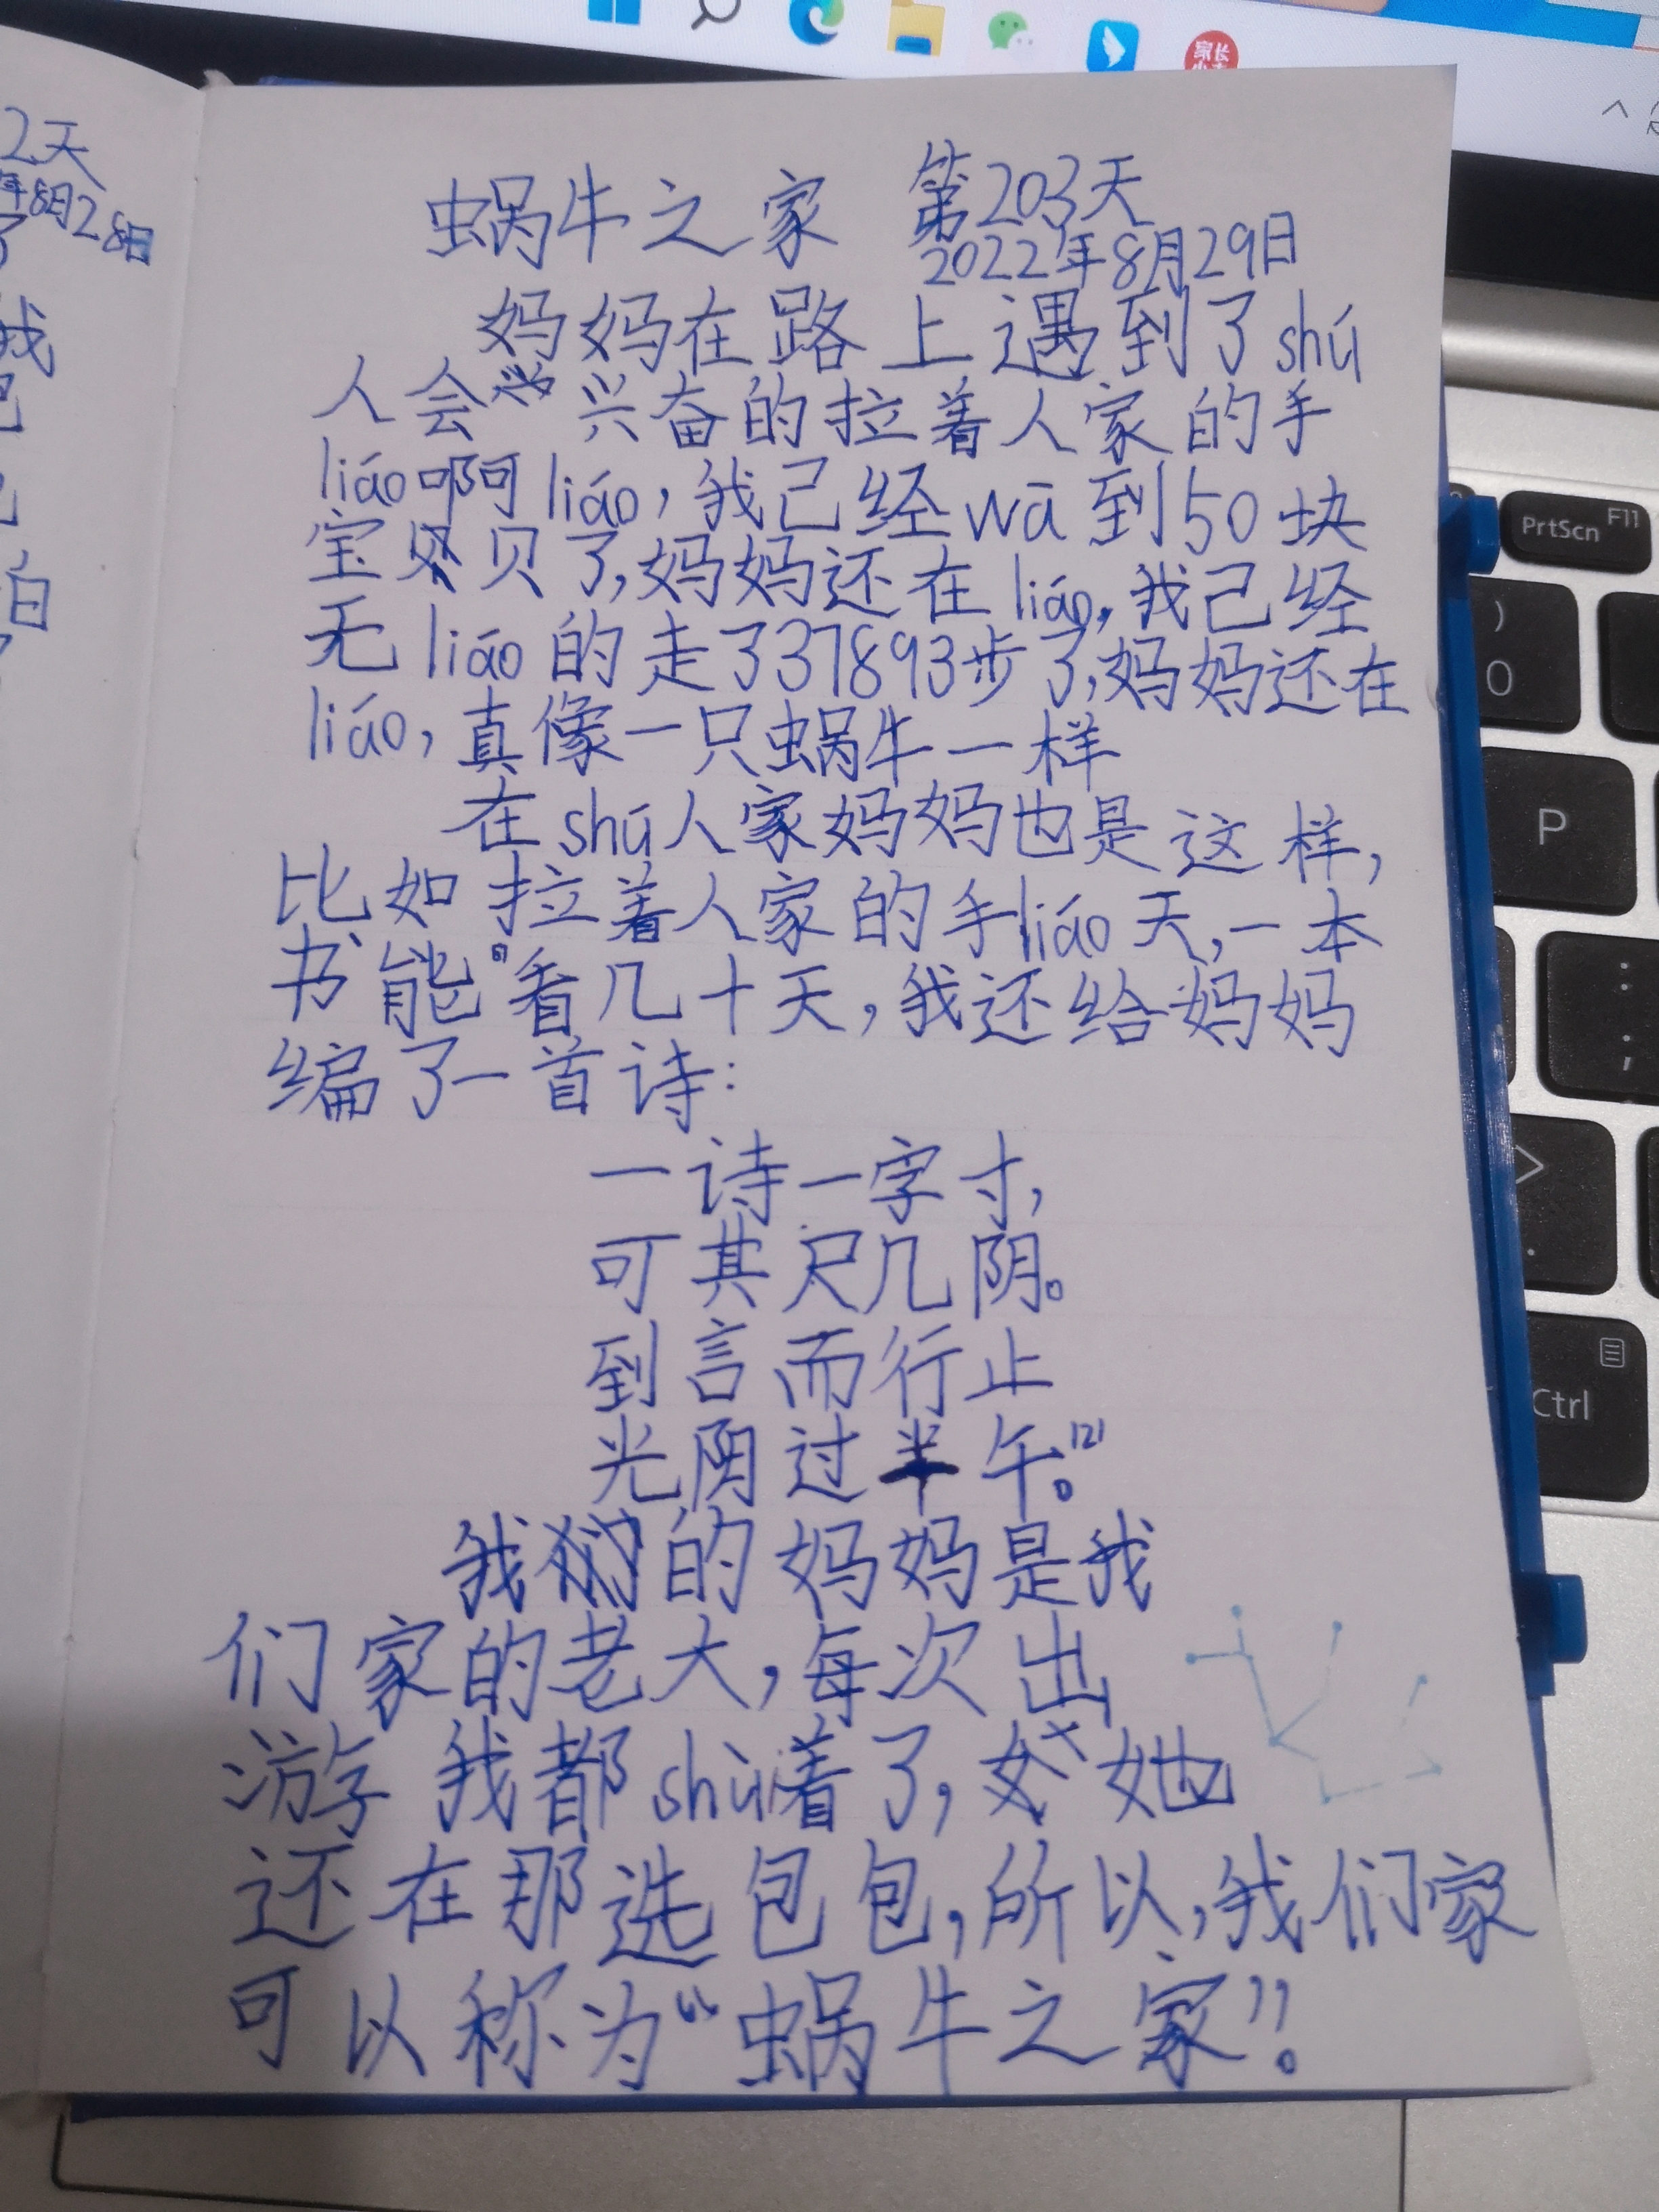 2天
年8月28日
了
我
白
蜗牛之家 第203天
2022年8月29日
妈妈在路上遇到了shú
人会兴奋的拉着人家的手
liáo啊liáo,我己经wā到50块
宝贝了,妈妈还在liáo,我己经
无liáo的走了37893步了,妈妈还在
liáo,真像一只蜗牛一样
在shú人家妈妈也是这样,
比如拉着人家的手liáo天,一本
书“能”[1]看几十天,我还给妈妈
编了一首诗:
一诗一字寸,
可其尺几阴。
到言而行止
光阴过半午。[2]
我的妈妈是我
们家的老大,每次出
游我都shùi着了,她
还在那选包包,所以,我们家
可以称为“蜗牛之家”!
家长
PrtScn F11
)
0
P
:
;
>
.
Ctrl